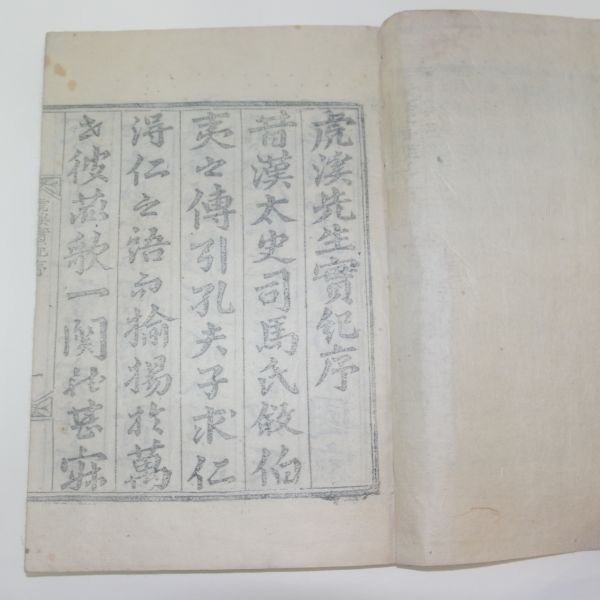 虎溪先生實紀序
昔漢太史司馬氏敘伯
夷之傳引孔夫子求仁
得仁之語而揄揚於萬
古彼薇歌一関於甚寐
虎溪實紀序
一